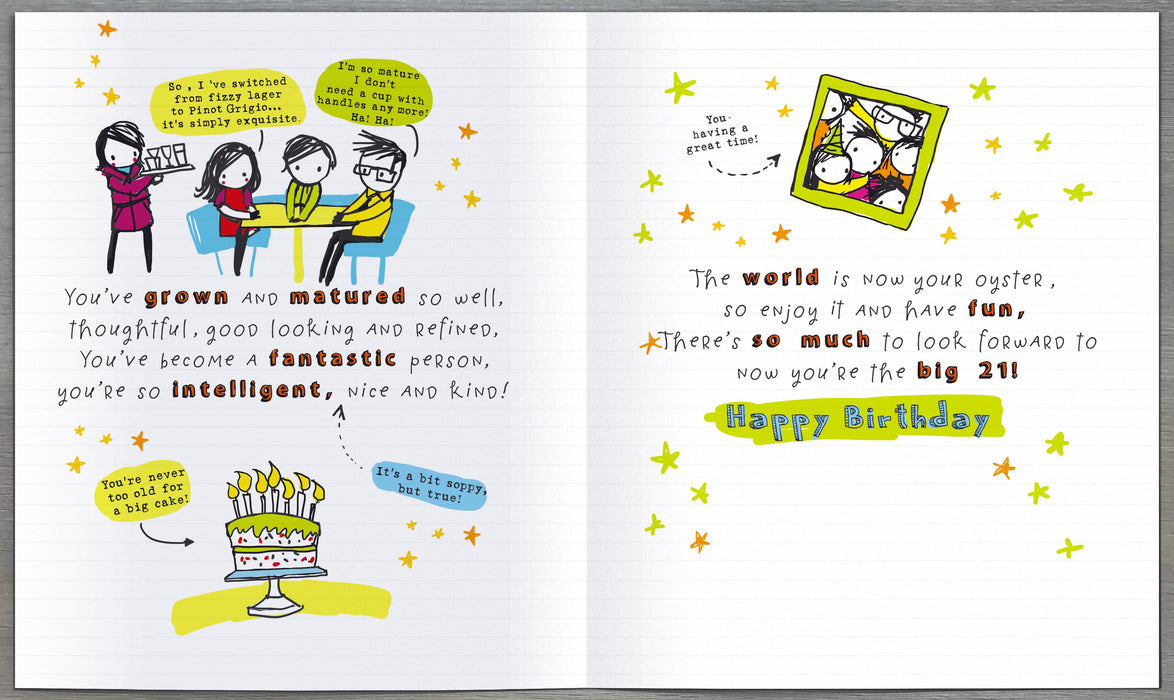 So , I 've switched
from fizzy lager
to Pinot Grigio...
it's simply exquisite.
I'm so mature
I don't
need a cup with
handles any more!
Ha! Ha!
You've grown and matured so well,
thoughtful, good looking and refined,
You've become a fantastic person,
you're so intelligent, nice and kind!
You're never
too old for
a big cake!
It's a bit soppy,
but true!
You-
having a
great time!
The world is now your oyster,
so enjoy it and have fun,
There's so much to look forward to
now you're the big 21!
Happy Birthday